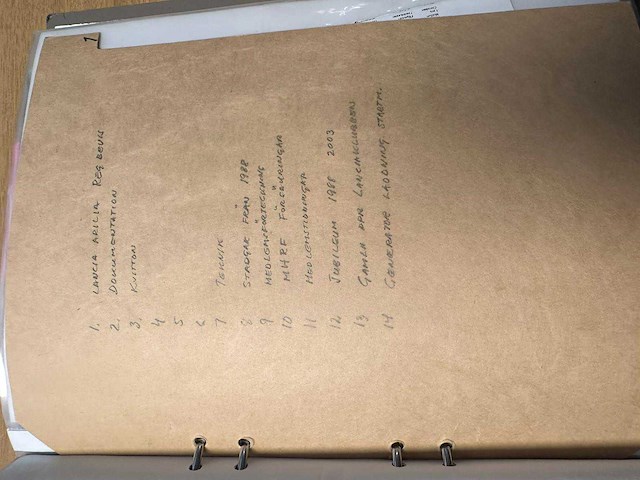 1
1. LANCIA APRILIA REG BEVIS
2. DOKUMENTATION
3. KVITTON
4
5
6
7 TEKNIK
8 STADGAR FRÅN 1988
9 MEDLEMSFÖRTECKNING
10 MHRF FÖRSÄKRINGAR
11 MEDLEMSTIDNINGAR
12 JUBILEUM 1988 2003
13 GAMLA LANCIAKLUBBEN
14 GENERATOR LADDNING STARTM.